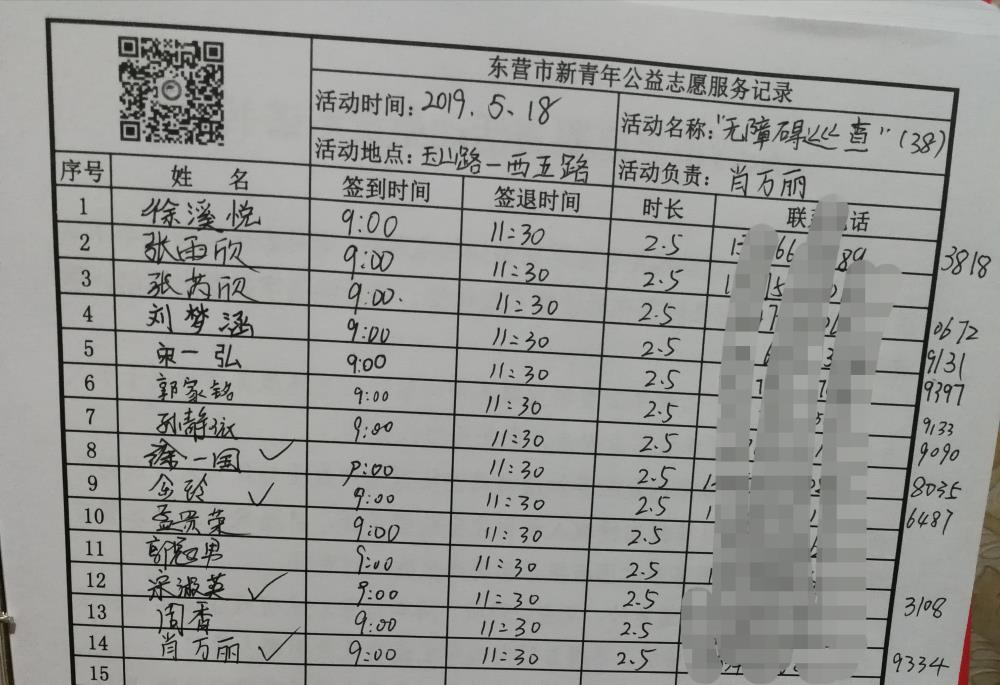 东营市新青年公益志愿服务记录
活动时间：2019.5.18 活动名称："无障碍巡查"(38)
活动地点：玉山路一西五路 活动负责：肖万丽
序号 姓名 签到时间 签退时间 时长 联系电话
1 徐溪悦 9:00 11:30 2.5
2 张雨欣 9:00 11:30 2.5 3818
3 张芮欣 9:00. 11:30 2.5
4 刘梦涵 9:00 11:30 2.5 0672
5 宋一弘 9:00 11:30 2.5 9131
6 郭家铭 9:00 11:30 2.5 9397
7 孙静依 9:00 11:30 2.5 9133
8 徐一国 ✓ 9:00 11:30 2.5 9090
9 金玲 ✓ 9:00 11:30 2.5 8035
10 孟贵荣 9:00 11:30 2.5 6487
11 郭冠男 9:00 11:30 2.5
12 宋淑英 ✓ 9:00 11:30 2.5
13 周香 9:00 11:30 2.5 3108
14 肖万丽 ✓ 9:00 11:30 2.5 9334
15